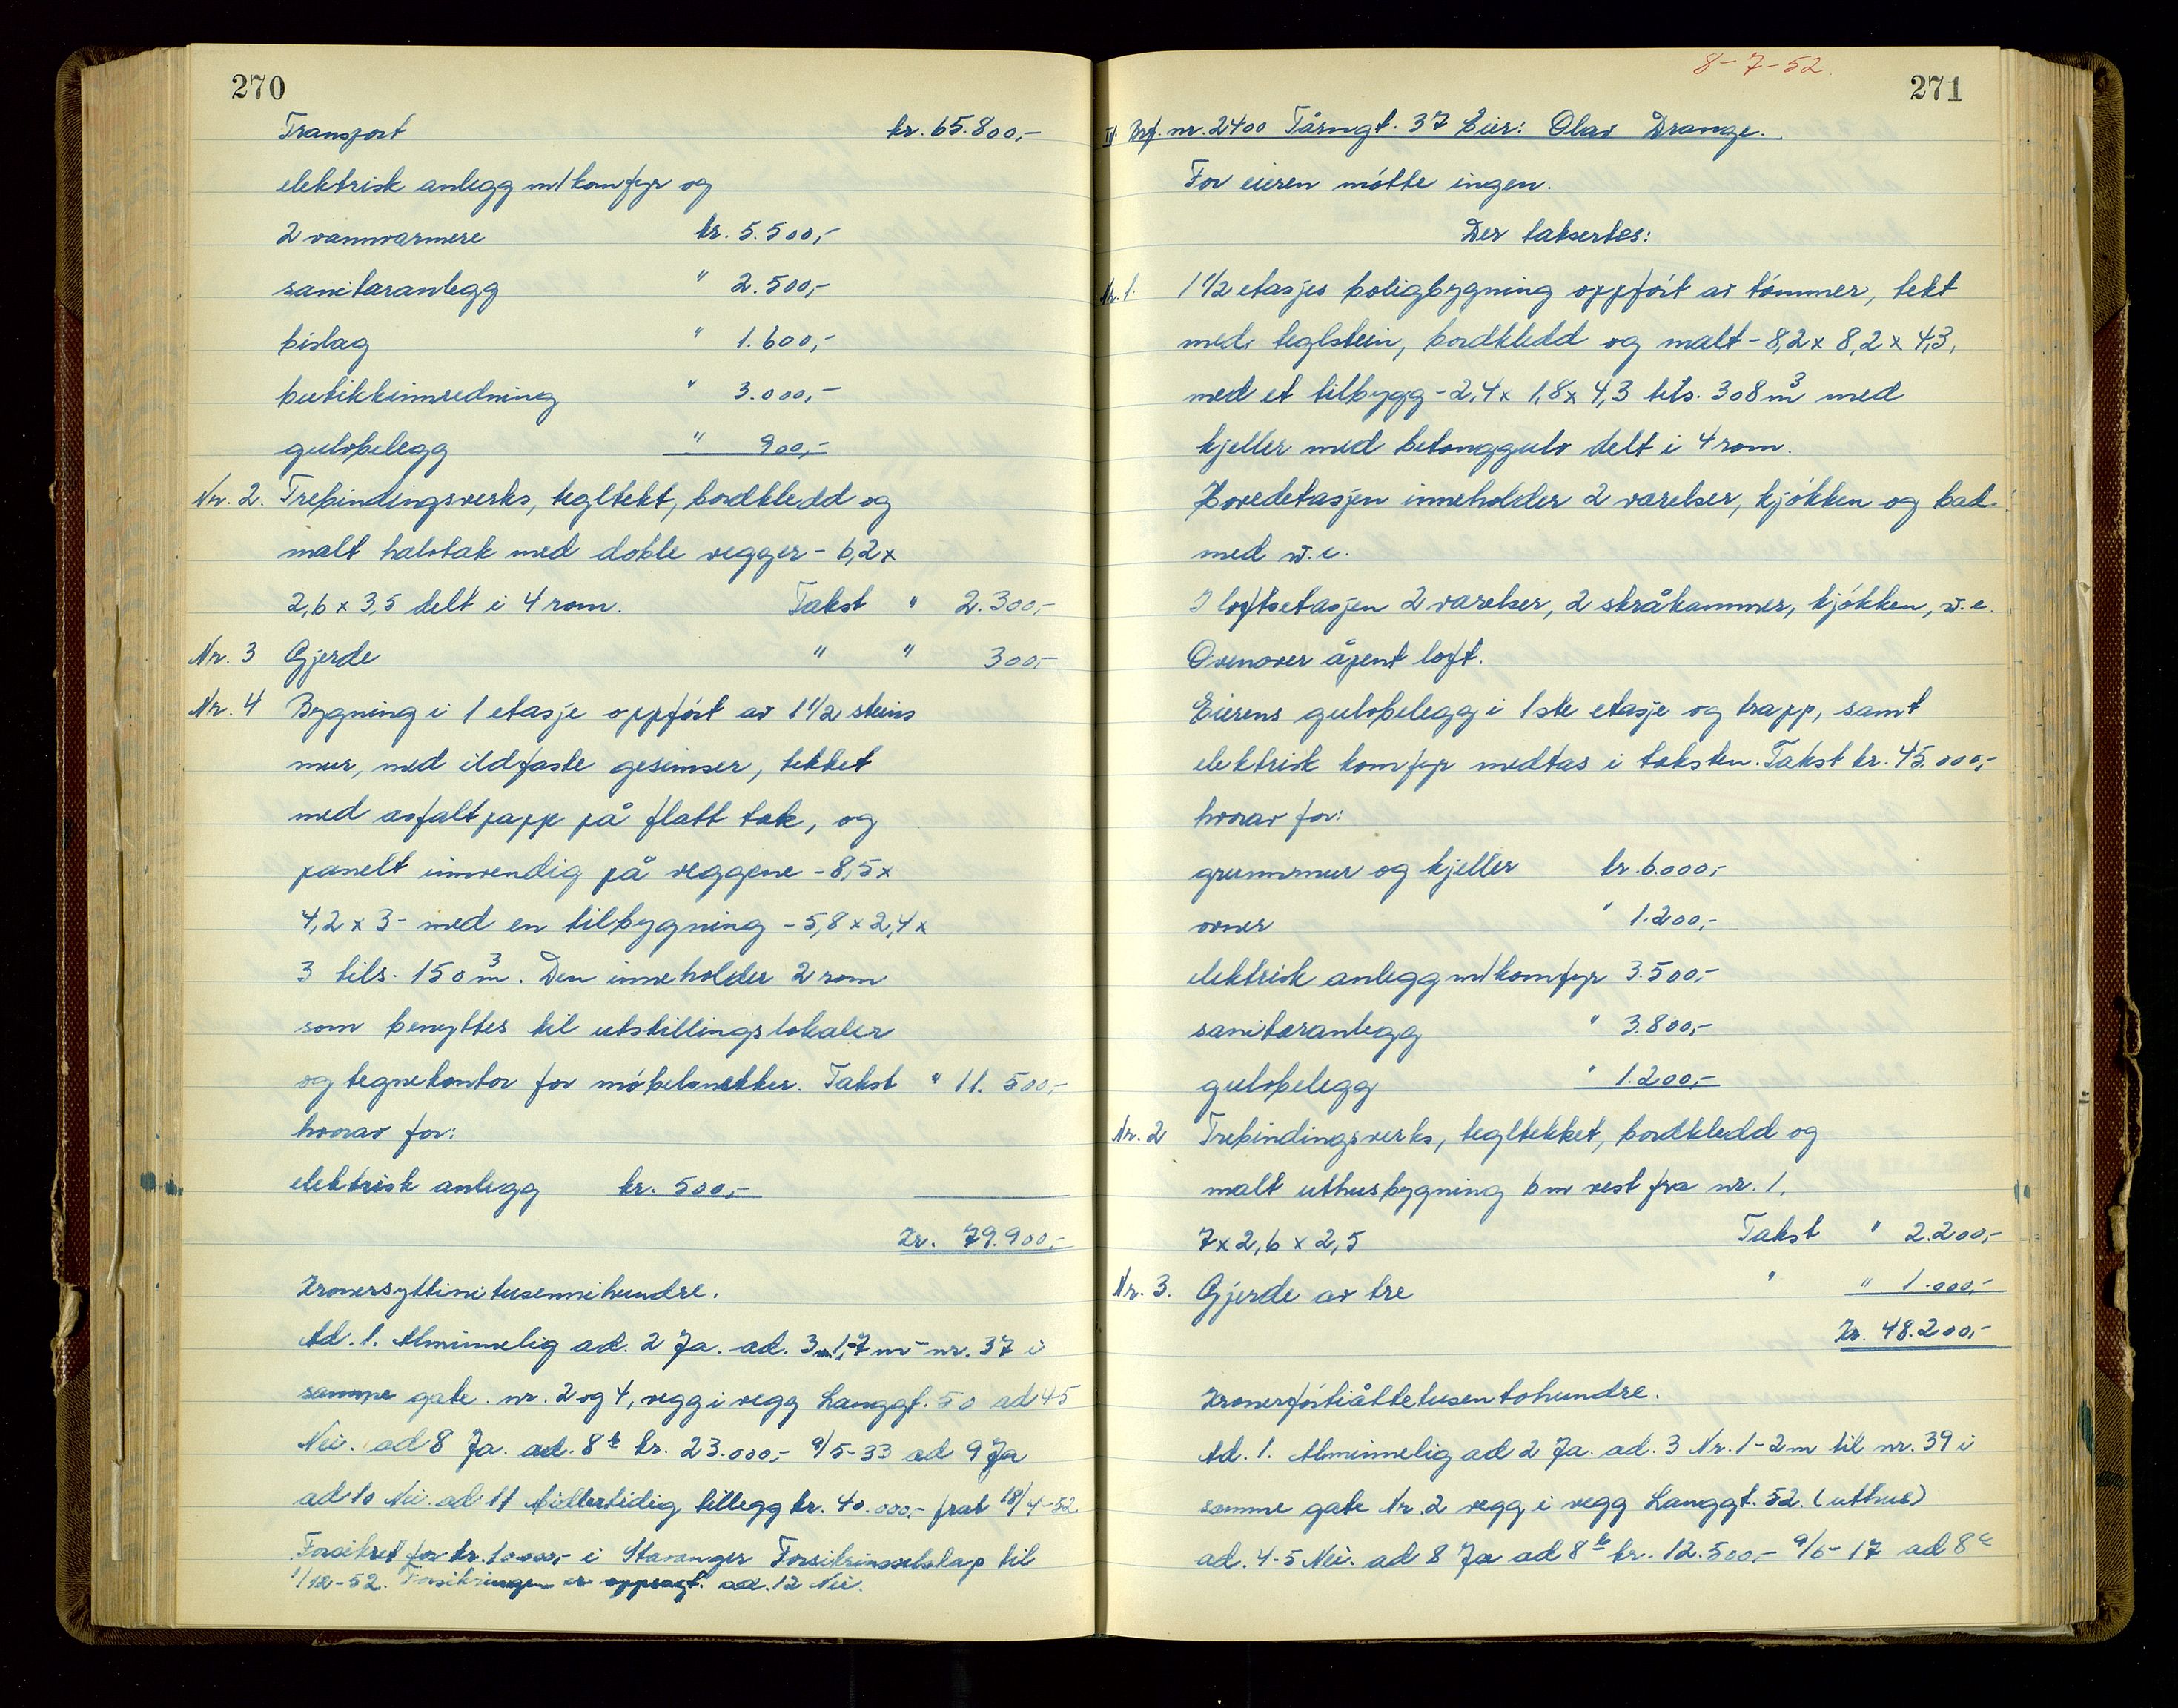 270
Transport kr. 65.800,-
elektrisk anlegg m/komfyr og
2 vannvarmere kr. 5.500,-
sanitæranlegg " 2.500,-
bislag " 1.600,-
butikkinnredning " 3.000,-
gulvbelegg " 900,-
Nr. 2. Trebindingsverks, tegltekt, bordkledd og
malt halvtak med doble vegger - 6,2 x
2,6 x 3,5 delt i 4 rom. Takst " 2.300,-
Nr. 3 Gjerde " " 300,-
Nr. 4 Bygning i 1 etasje oppført av 1 1/2 steins
mur, med ildfaste gesimser, tekket
med asfaltpapp på flatt tak, og
panelt innvendig på veggene - 8,5 x
4,2 x 3 - med en tilbygning - 5,8 x 2,4 x
3 tils. 150 m³. Den inneholder 2 rom
som benyttes til utstillingslokaler
og tegnekontor for møbelsnekker. Takst " 11.500,-
hvorav for:
elektrisk anlegg kr. 500,-
Kr. 79.900,-
Kronersyttinitusennihundre.
Ad. 1. Alminnelig ad. 2 Ja. ad. 3 1,7 m nr. 37 i
samme gate. nr. 2 og 4, vegg i vegg Langgt. 50 ad 4-5
Nei. ad 8 Ja. ad. 8 b kr. 23.000,- 9/5-33 ad 9 Ja
ad 10 Nei. ad 11 Midlertidig tillegg kr. 40.000,- frat 18/4-52
Forsikret for kr. 10.000,- i Stavanger Forsikringsselskap til
1/12-52. Forsikringen er oppsagt. ad. 12 Nei.
8-7-52.
271
IV. Brf. nr. 2400 Tårngt. 37 Eier: Olav Drange.
For eieren møtte ingen.
Der taksertes:
Nr. 1. 1 1/2 etasjes boligbygning oppført av tømmer, tekt
med teglstein, bordkledd og malt - 8,2 x 8,2 x 4,3,
med et tilbygg - 2,4 x 1,8 x 4,3 tils. 308 m³ med
kjeller med betonggulv delt i 4 rom.
Hovedetasjen inneholder 2 værelser, kjøkken og bad
med w.c.
I loftsetasjen 2 værelser, 2 skråkammer, kjøkken, w.c.
Ovenover åpent loft.
Eierens gulvbelegg i 1ste etasje og trapp, samt
elektrisk komfyr medtas i taksten. Takst kr. 45.000,-
hvorav for:
grunnmur og kjeller kr. 6.000,-
ovner " 1.200,-
elektrisk anlegg m/komfyr 3.500,-
sanitæranlegg " 3.800,-
gulvbelegg " 1.200,-
Nr. 2 Trebindingsverks, tegltekket, bordkledd og
malt uthusbygning 6 m vest fra nr. 1.
7 x 2,6 x 2,5 Takst " 2.200,-
Nr. 3. Gjerde av tre " " 1.000,-
Kr. 48.200,-
Kronerførtiåttetusentohundre.
Ad. 1. Alminnelig ad 2 Ja. ad. 3 Nr. 1 - 2 m til nr. 39 i
samme gate Nr. 2 vegg i vegg Langgt. 52. (uthus)
ad. 4-5 Nei. ad 8 Ja ad 8 b kr. 12.500,- 9/5-17 ad 8 c